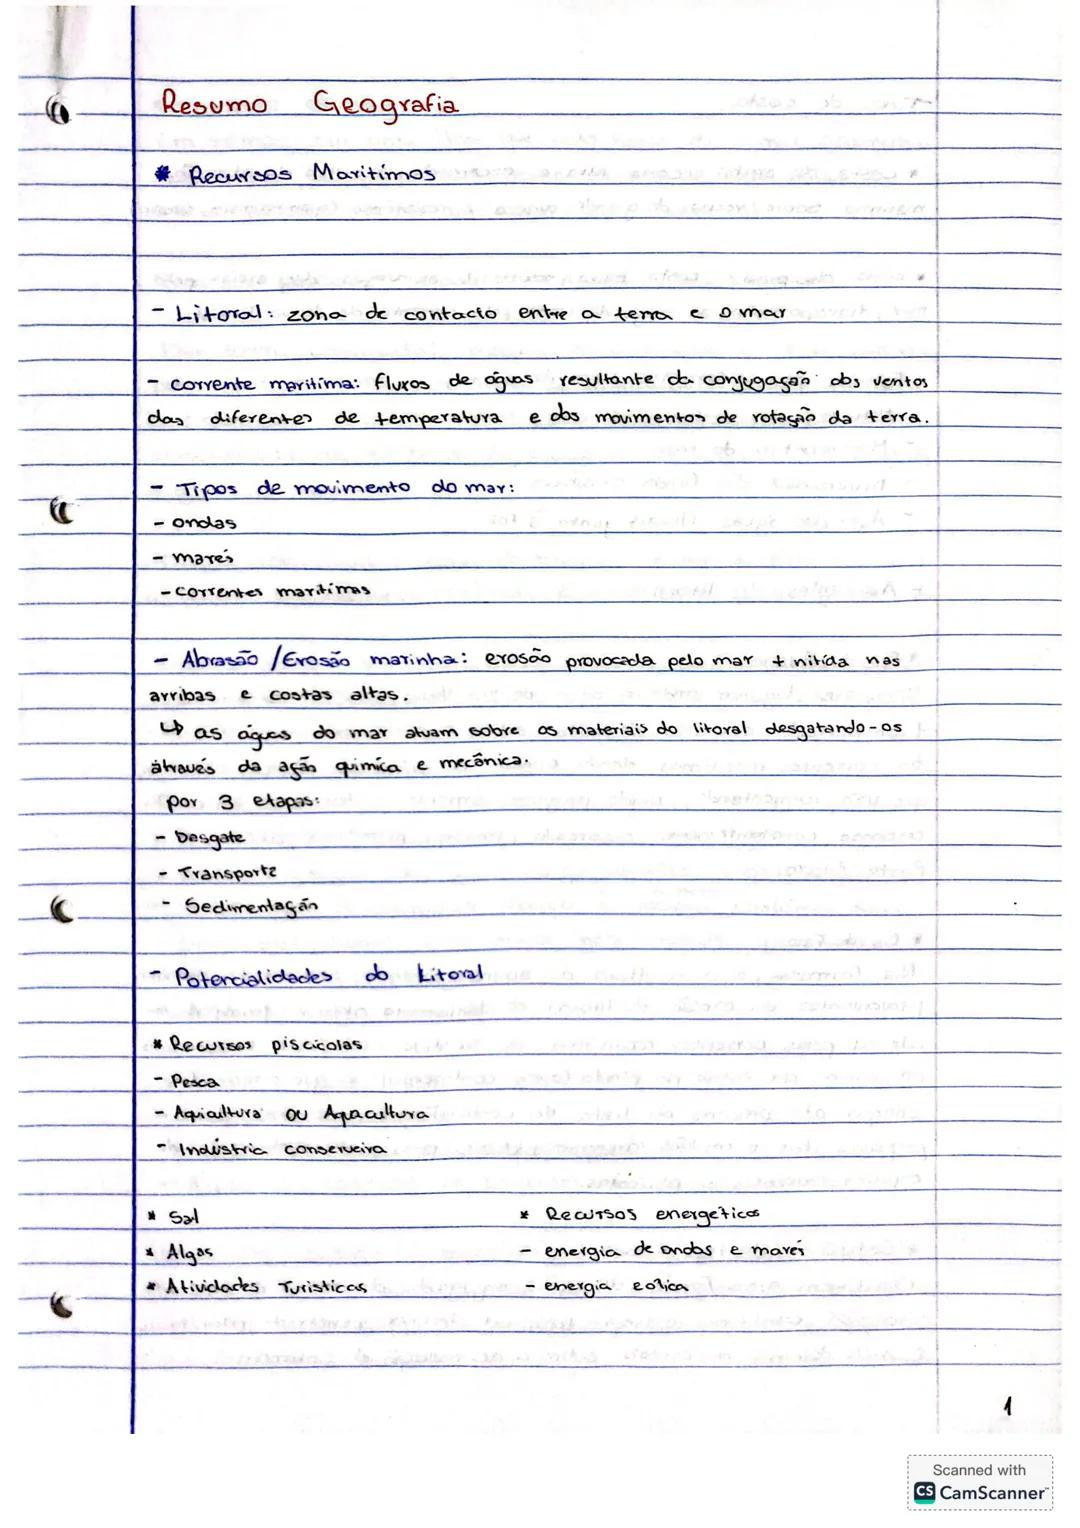 Resumo Geografia
* Recursos Maritímos
- Litoral: zona de contacto entre a terra e o mar
- corrente maritíma: fluxos de águas resultante da conjugação dos ventos
das diferentes de temperatura e dos movimentos de rotação da terra.
- Tipos de movimento do mar:
- ondas
- marés
- correntes marítimas
- Abrasão / Erosão marinha: erosão provocada pelo mar + nitída nas
arribas e costas altas.
↳ as águas do mar atuam sobre os materiais do litoral desgatando-os
átravés da ação quimíca e mecânica.
por 3 etapas:
- Desgate
- Transporte
- Sedimentação
- Potencialidades do Litoral
* Recursos piscícolas
- Pesca
- Aquicultura ou Aquacultura
- Indústria conserveira
* Sal
* Algas
* Atividades Turisticas
* Recursos energéticos
- energia de ondas e marés
- energia eólica
1
Scanned with
CS CamScanner